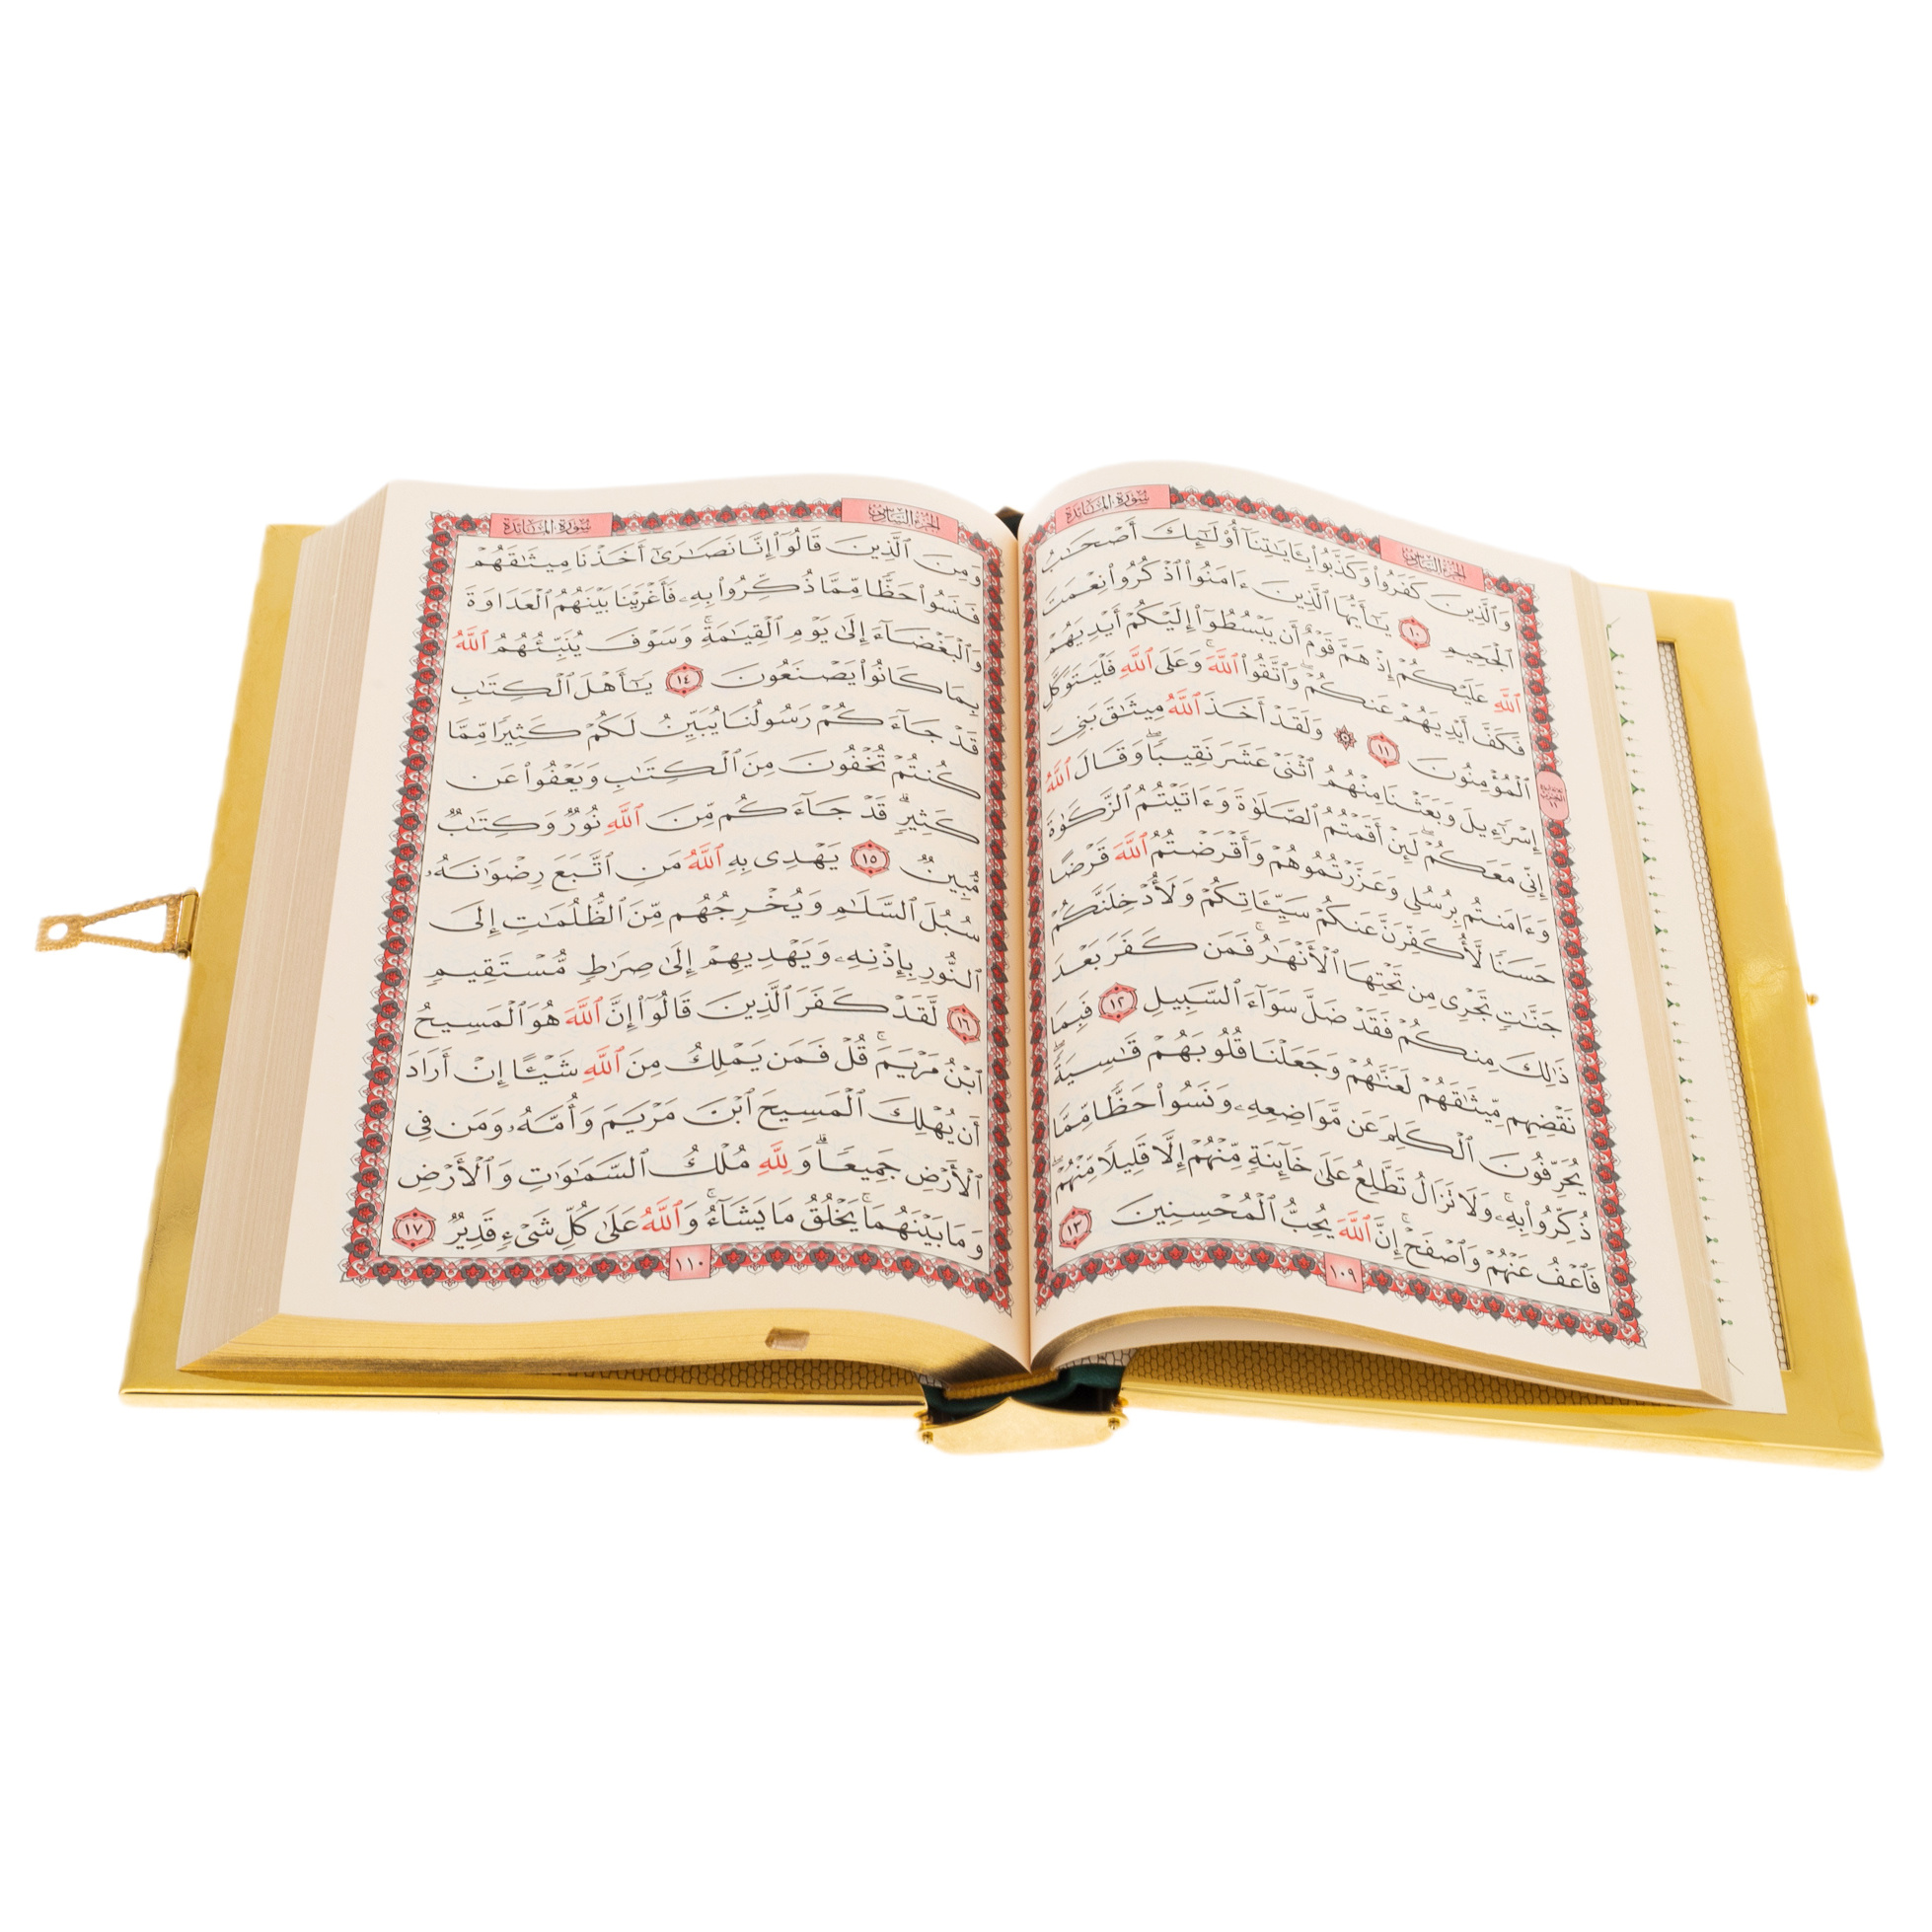 سُورَةُ المَائـدة
الجُزءُ السَّادِسُ
وَٱلَّذِينَ كَفَرُوا۟ وَكَذَّبُوا۟ بِـَٔايَـٰتِنَآ أُو۟لَـٰٓئِكَ أَصْحَـٰبُ
ٱلْجَحِيمِ ١٠ يَـٰٓأَيُّهَا ٱلَّذِينَ ءَامَنُوا۟ ٱذْكُرُوا۟ نِعْمَتَ
ٱللَّهِ عَلَيْكُمْ إِذْ هَمَّ قَوْمٌ أَن يَبْسُطُوٓا۟ إِلَيْكُمْ أَيْدِيَهُمْ
فَكَفَّ أَيْدِيَهُمْ عَنكُمْ ۖ وَٱتَّقُوا۟ ٱللَّهَ ۚ وَعَلَى ٱللَّهِ فَلْيَتَوَكَّلِ
ٱلْمُؤْمِنُونَ ١١ ۞ وَلَقَدْ أَخَذَ ٱللَّهُ مِيثَـٰقَ بَنِىٓ
إِسْرَٰٓءِيلَ وَبَعَثْنَا مِنْهُمُ ٱثْنَىْ عَشَرَ نَقِيبًا ۖ وَقَالَ ٱللَّهُ
إِنِّى مَعَكُمْ ۖ لَئِنْ أَقَمْتُمُ ٱلصَّلَوٰةَ وَءَاتَيْتُمُ ٱلزَّكَوٰةَ
وَءَامَنتُم بِرُسُلِى وَعَزَّرْتُمُوهُمْ وَأَقْرَضْتُمُ ٱللَّهَ قَرْضًا
حَسَنًا لَّأُكَفِّرَنَّ عَنكُمْ سَيِّـَٔاتِكُمْ وَلَأُدْخِلَنَّكُمْ
جَنَّـٰتٍ تَجْرِى مِن تَحْتِهَا ٱلْأَنْهَـٰرُ ۚ فَمَن كَفَرَ بَعْدَ
ذَٰلِكَ مِنكُمْ فَقَدْ ضَلَّ سَوَآءَ ٱلسَّبِيلِ ١٢ فَبِمَا
نَقْضِهِم مِّيثَـٰقَهُمْ لَعَنَّـٰهُمْ وَجَعَلْنَا قُلُوبَهُمْ قَـٰسِيَةً ۖ
يُحَرِّفُونَ ٱلْكَلِمَ عَن مَّوَاضِعِهِۦ ۙ وَنَسُوا۟ حَظًّا مِّمَّا
ذُكِّرُوا۟ بِهِۦ ۚ وَلَا تَزَالُ تَطَّلِعُ عَلَىٰ خَآئِنَةٍ مِّنْهُمْ إِلَّا قَلِيلًا مِّنْهُمْ ۖ
فَٱعْفُ عَنْهُمْ وَٱصْفَحْ ۚ إِنَّ ٱللَّهَ يُحِبُّ ٱلْمُحْسِنِينَ ١٣
١٠٩
سُورَةُ المَائـدة
الجُزءُ السَّادِسُ
وَمِنَ ٱلَّذِينَ قَالُوٓا۟ إِنَّا نَصَـٰرَىٰٓ أَخَذْنَا مِيثَـٰقَهُمْ
فَنَسُوا۟ حَظًّا مِّمَّا ذُكِّرُوا۟ بِهِۦ فَأَغْرَيْنَا بَيْنَهُمُ ٱلْعَدَاوَةَ
وَٱلْبَغْضَآءَ إِلَىٰ يَوْمِ ٱلْقِيَـٰمَةِ ۚ وَسَوْفَ يُنَبِّئُهُمُ ٱللَّهُ
بِمَا كَانُوا۟ يَصْنَعُونَ ١٤ يَـٰٓأَهْلَ ٱلْكِتَـٰبِ
قَدْ جَآءَكُمْ رَسُولُنَا يُبَيِّنُ لَكُمْ كَثِيرًا مِّمَّا
كُنتُمْ تُخْفُونَ مِنَ ٱلْكِتَـٰبِ وَيَعْفُوا۟ عَن
كَثِيرٍ ۚ قَدْ جَآءَكُم مِّنَ ٱللَّهِ نُورٌ وَكِتَـٰبٌ
مُّبِينٌ ١٥ يَهْدِى بِهِ ٱللَّهُ مَنِ ٱتَّبَعَ رِضْوَٰنَهُۥ
سُبُلَ ٱلسَّلَـٰمِ وَيُخْرِجُهُم مِّنَ ٱلظُّلُمَـٰتِ إِلَى
ٱلنُّورِ بِإِذْنِهِۦ وَيَهْدِيهِمْ إِلَىٰ صِرَٰطٍ مُّسْتَقِيمٍ
١٦ لَّقَدْ كَفَرَ ٱلَّذِينَ قَالُوٓا۟ إِنَّ ٱللَّهَ هُوَ ٱلْمَسِيحُ
ٱبْنُ مَرْيَمَ ۚ قُلْ فَمَن يَمْلِكُ مِنَ ٱللَّهِ شَيْـًٔا إِنْ أَرَادَ
أَن يُهْلِكَ ٱلْمَسِيحَ ٱبْنَ مَرْيَمَ وَأُمَّهُۥ وَمَن فِى
ٱلْأَرْضِ جَمِيعًا ۗ وَلِلَّهِ مُلْكُ ٱلسَّمَـٰوَٰتِ وَٱلْأَرْضِ
وَمَا بَيْنَهُمَا ۚ يَخْلُقُ مَا يَشَآءُ ۚ وَٱللَّهُ عَلَىٰ كُلِّ شَىْءٍ قَدِيرٌ ١٧
١١٠